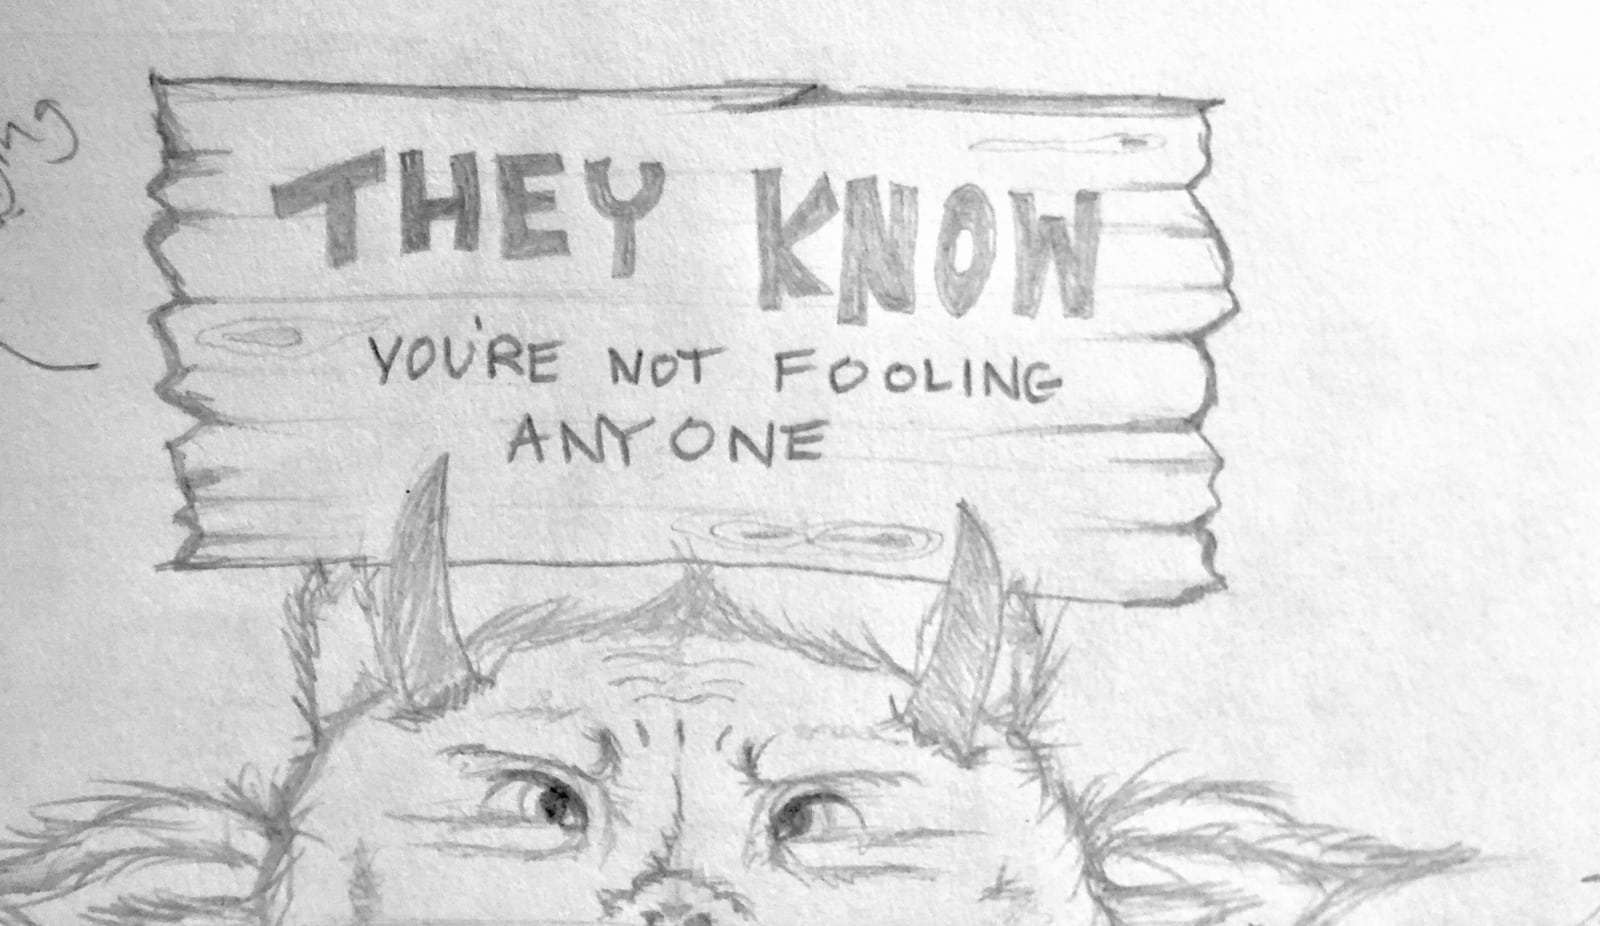 THEY KNOW
YOU'RE NOT FOOLING
ANYONE